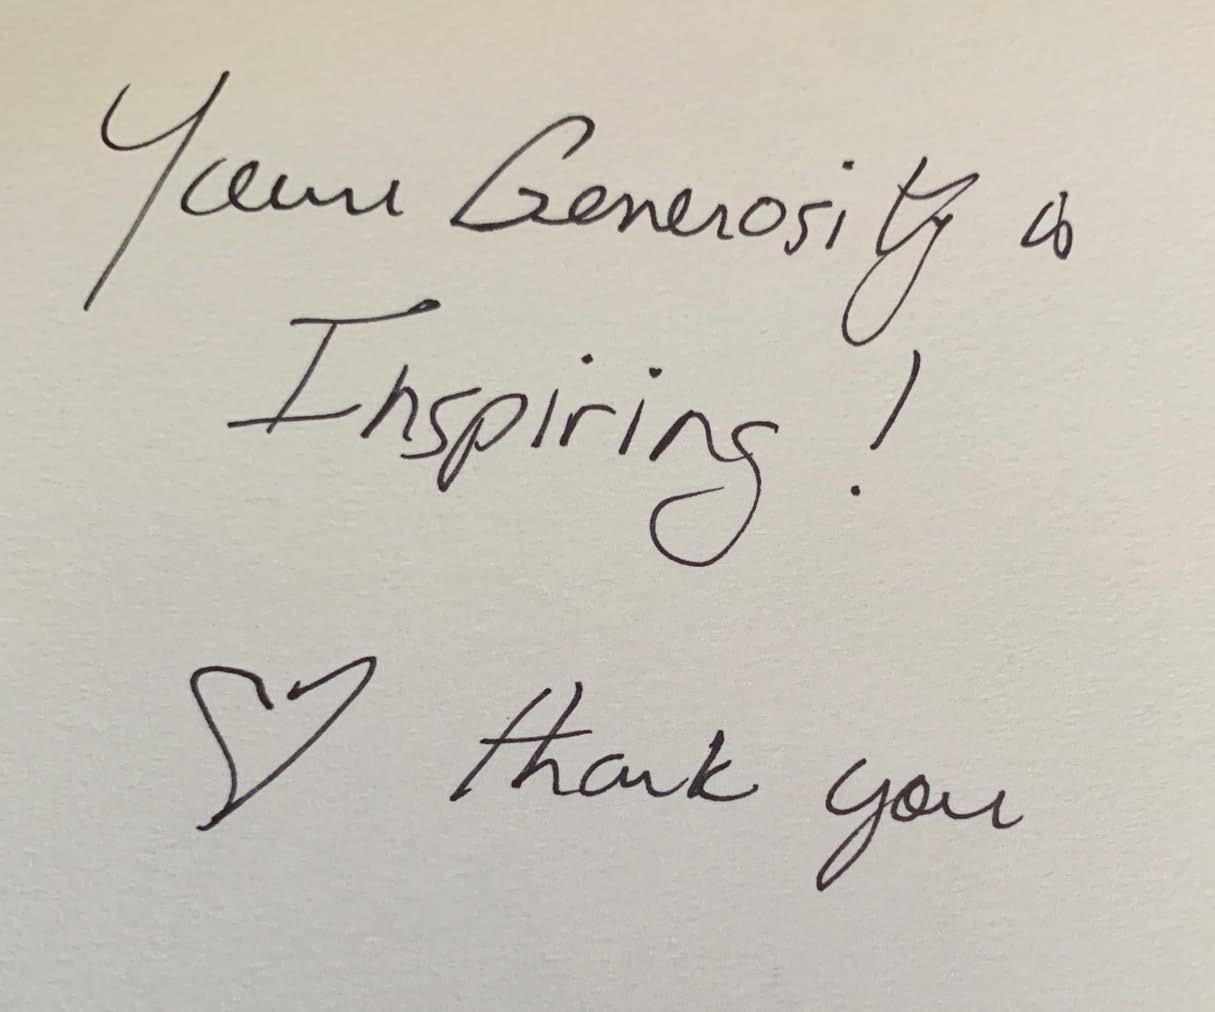 Your Generosity is
Inspiring!
thank you